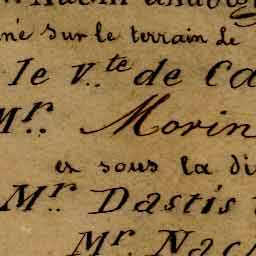 né sur le terrain de
le V.te de Ca
Mr. Morin
et sous la di
Mr. Dastis
Mr. Nac